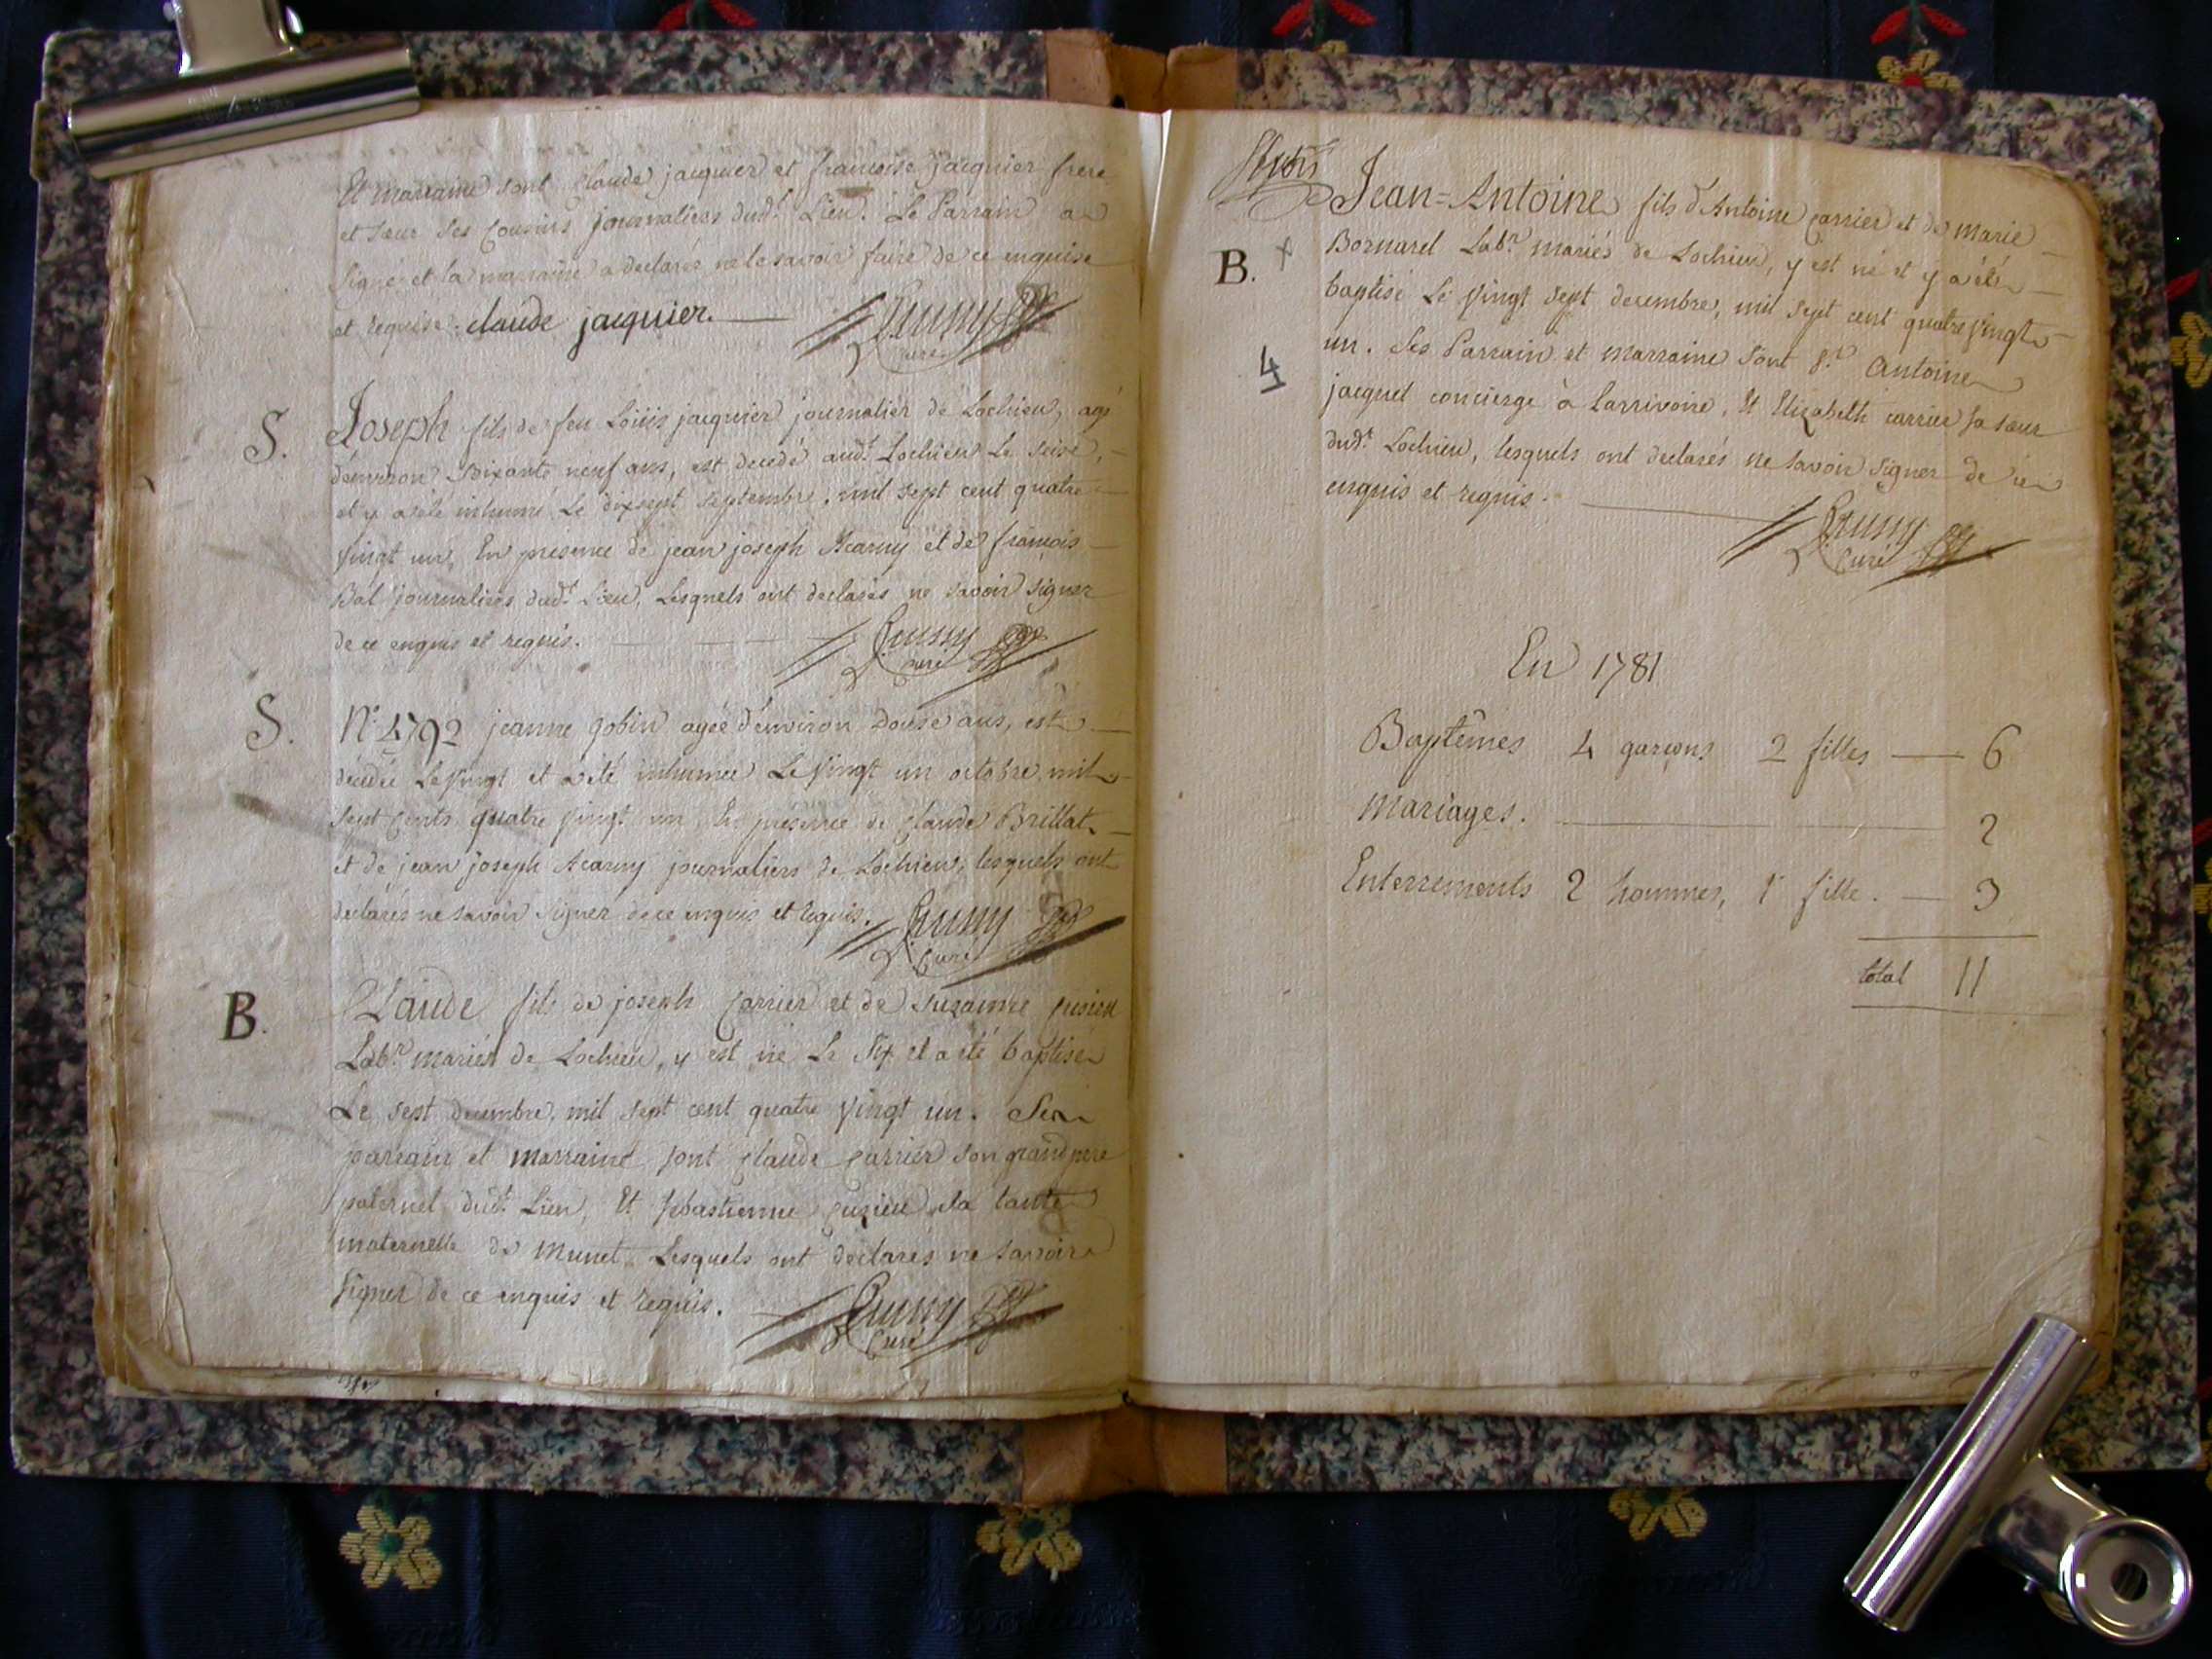 Et marraine sont Claude jacquier et francoise jacquier frere
et sœur ses Cousins journaliers dud.t Lieu. Le Parrain a
signé et la marraine a declarés ne le savoir faire de ce enquise
et requise. claude jacquier.
Curé
S. Joseph fils de feu Loüis jacquier journalier de Lochieu, agé
d'environ soixante neuf ans, est decedé aud.t Lochieu Le seise,
et y a été inhumé Le dixsept septembre, mil sept cent quatre
vingt un, En presence de jean joseph Acarny et de françois
Bal journaliers dud.t Lieu, Lesquels ont declarés ne savoir signer
de ce enquis et requis.
Curé
S. N.° 4792 jeanne gobin agée d'environ Douse ans, est
décédée Le Vingt et a été inhumée Le Vingt un octobre mil
sept cents quatre vingt un En presence de Claude Brillat
et de jean joseph Acarny journaliers de Lochieu, lesquels ont
declarés ne savoir signer de ce enquis et requis.
Curé
B. Claude fils de joseph Carrier et de Suzanne Cusieu
Lab.rs mariés de Lochieu, y est né Le Six et a été baptisé
Le sept decembre mil sept cent quatre vingt un. Ses
parrain et marraine sont Claude Carrier son grand pere
paternel dud.t Lieu, Et sebastienne Cusieu sa tante
maternelle de Munet, Lesquels ont declarés ne savoir
signer de ce enquis et requis.
Curé
B. Jean=Antoine fils d'Antoine Carrier et de Marie
Bornarel Lab.rs mariés de Lochieu, y est né et y a été
baptisé Le Vingt Sept decembre, mil sept cent quatre Vingt
un. Ses Parrain et Marraine sont S.r Antoine
4
jacquet concierge à Larrivoire, Et Elizabeth carrier sa sœur
dud.t Lochieu, lesquels ont declarés ne savoir signer de ce
enquis et requis.
Curé
En 1781
Baptêmes 4 garçons 2 filles — 6
Mariages. — 2
Enterrements 2 hommes, 1 fille. — 3
total 11